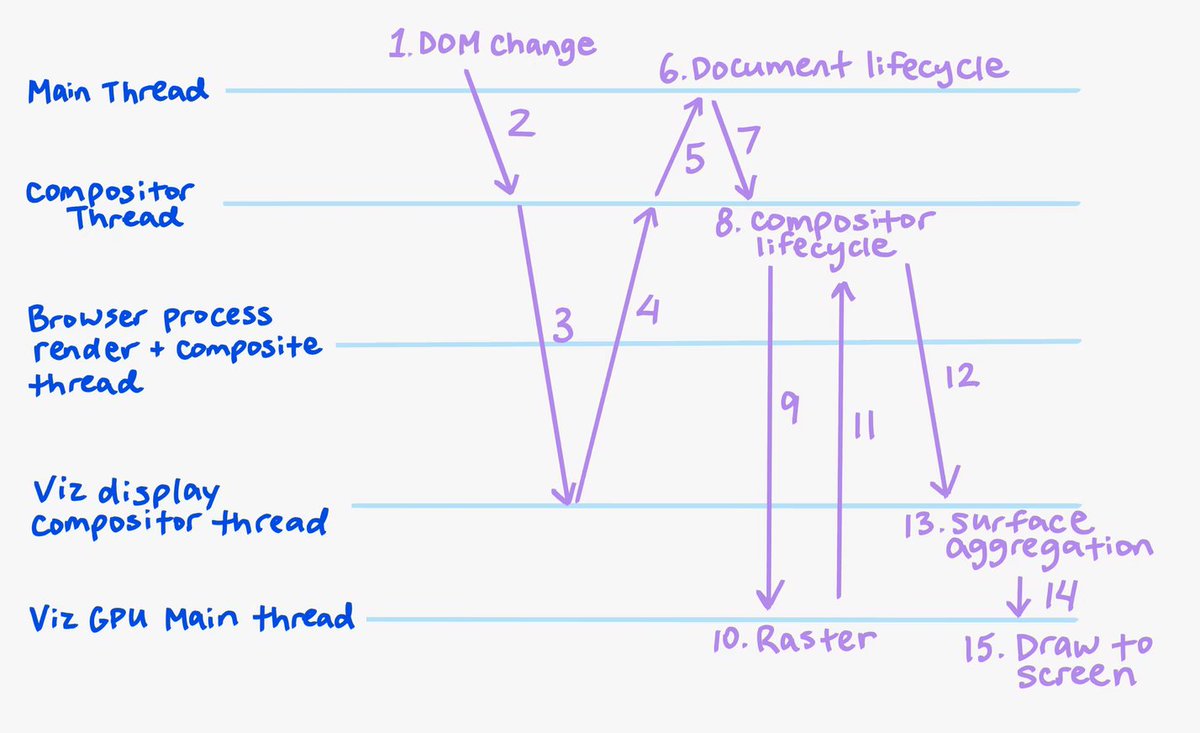 1. DOM change
6. Document lifecycle
Main Thread
2
7
5
Compositor
Thread
8. compositor
lifecycle
Browser process
render + composite
thread
3
4
12
9
11
Viz display
compositor thread
13. surface
aggregation
14
Viz GPU Main thread
10. Raster
15. Draw to
screen